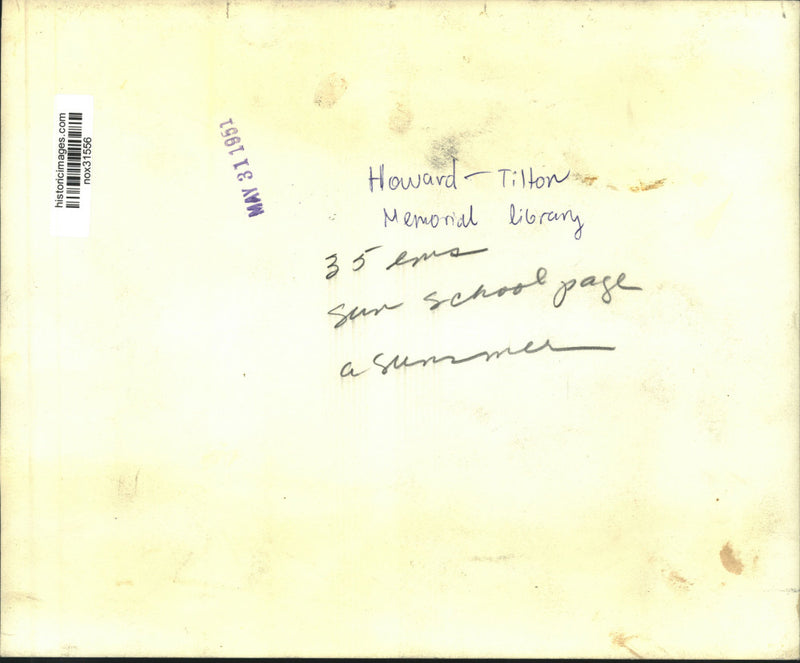 historicimages.com
nox31556
MAY 31 1951
Howard - Tilton
Memorial library
35 ems
Sun School page
a summer